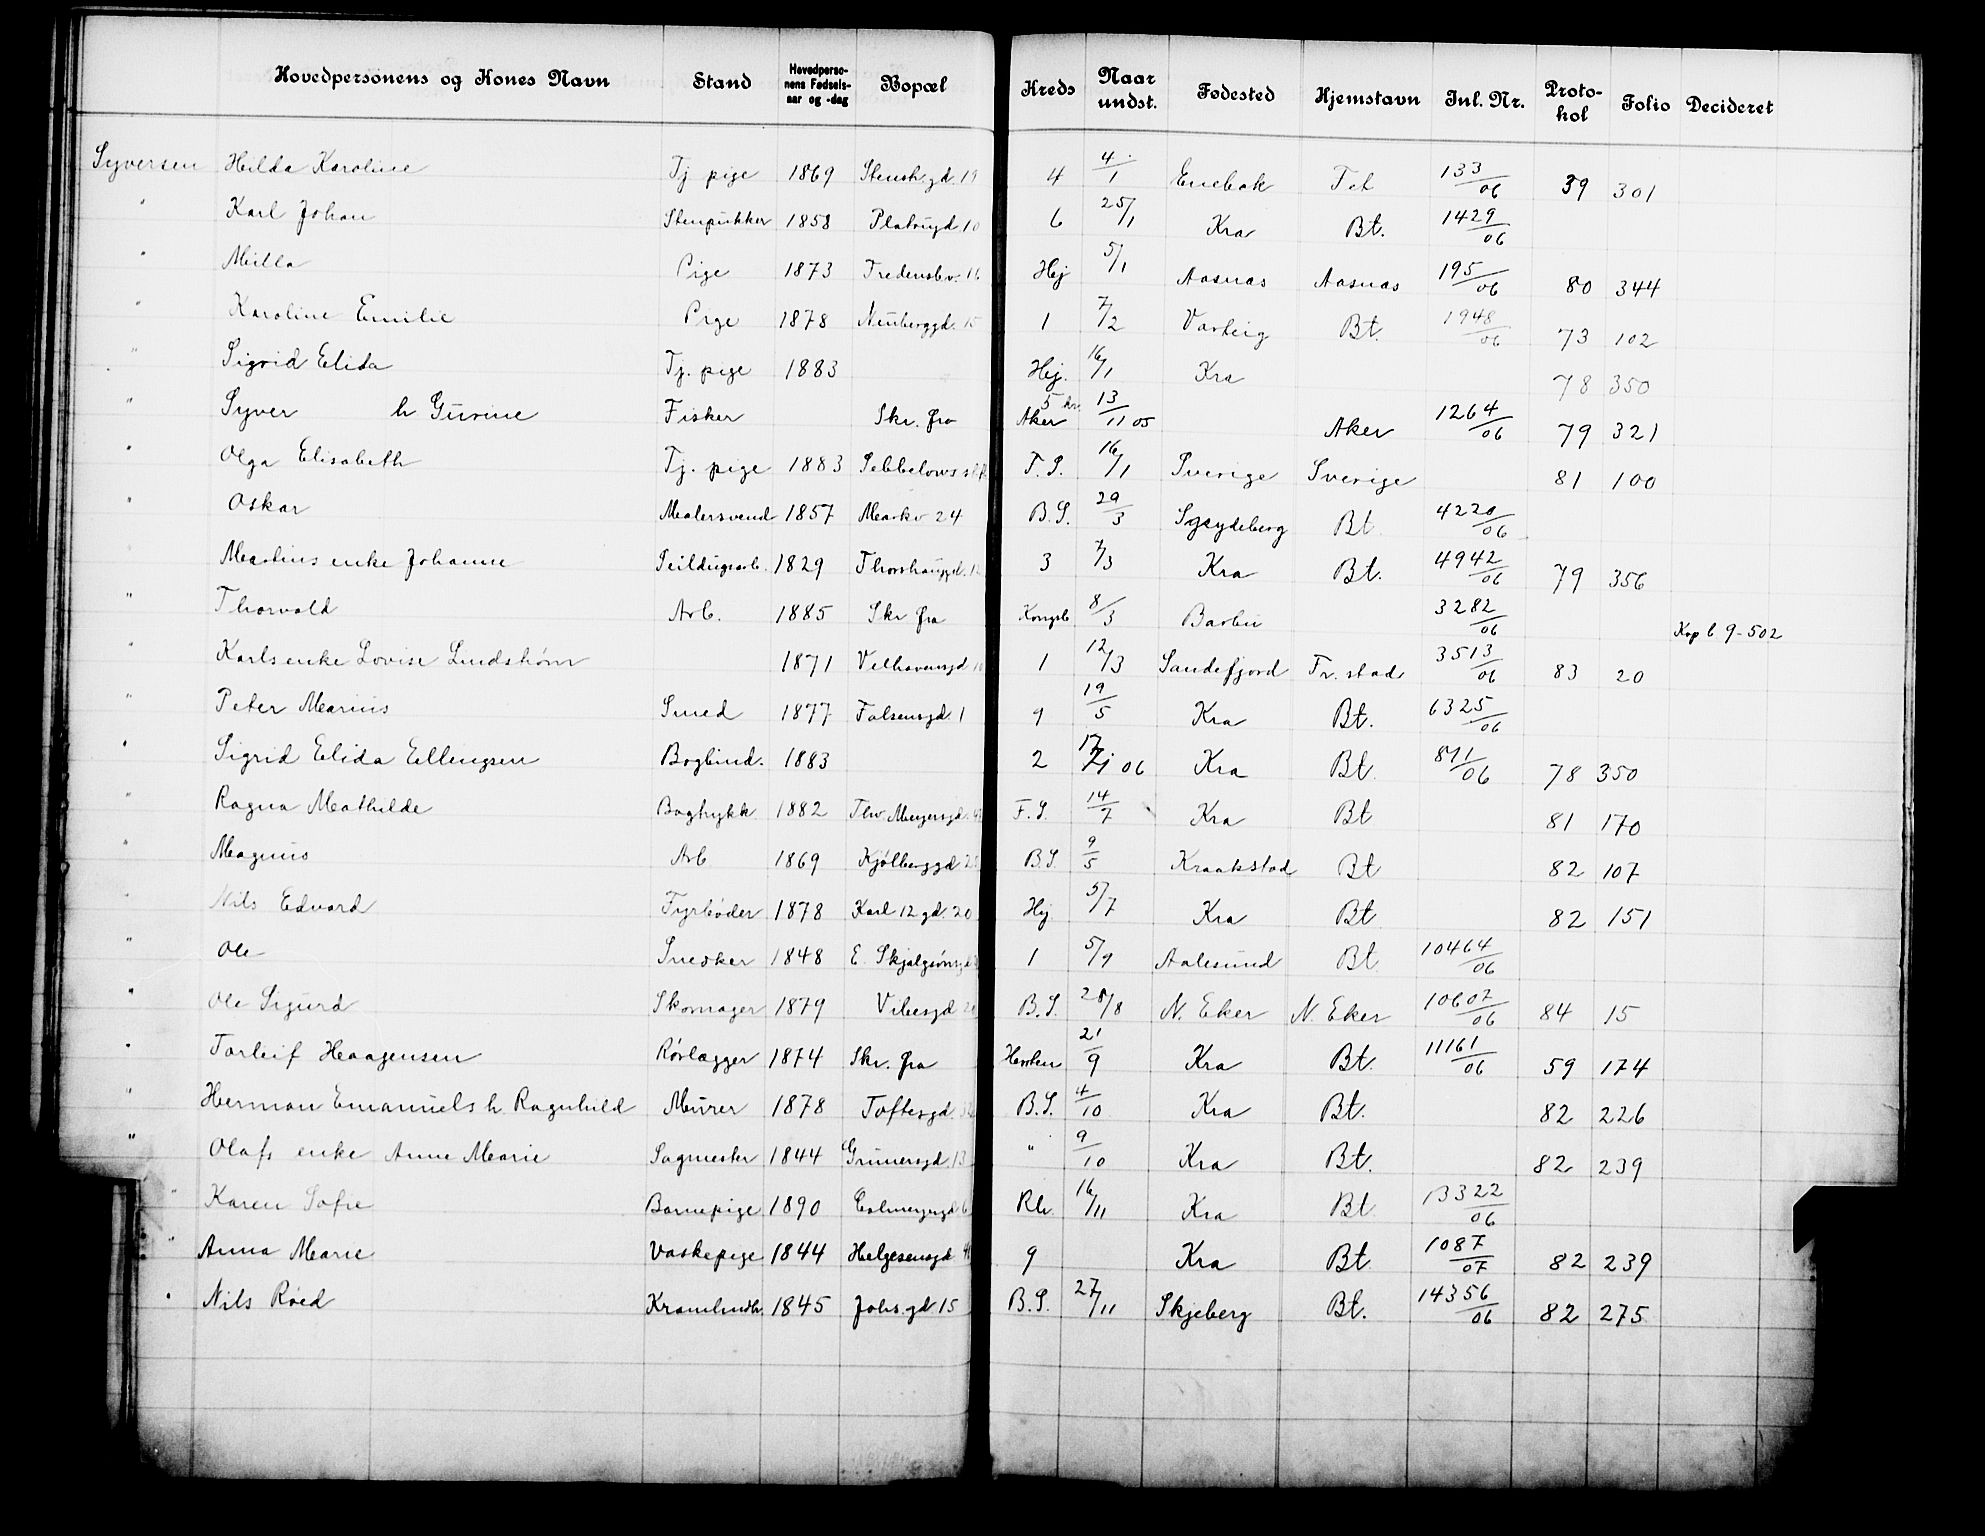 Hovedpersonens og Kones Navn Stand Hovedpersonens Fødselsaar og -dag Bopæl Kreds Naar undst. Fødested Hjemstavn Inl. Nr. Protokol Folio Decideret
Syversen Hilda Karoline Tj pige 1869 Stensb.gd. 19 4 4/1 Enebak Fet 133/06 39 301
" Karl Johan Stenpukker 1858 Platougd. 10 6 25/1 Kra Bt. 1429/06
" Milla Pige 1873 Fredensbv. 16 Hej 5/1 Aasnas Aasnas 195/06 80 344
Karoline Emilie Pige 1878 Neuberggd. 15 1 7/2 Varteig Bt. 1948/06 73 102
" Sigrid Elida Tj. pige 1883 Hej. 16/1 Kra 78 350
" Syver h Gurine Fisker Skr. fra 5 kr. Aker 13/11 05 Aker 1264/06 79 321
" Olga Elisabeth Tj. pige 1883 T. S. 16/1 Sverige Sverige 81 100
" Oskar Malersvend 1857 Markv 24 B. S. 29/3 Spydeberg Bt 4220/06
Martins enke Johanne Seildugsarb. 1829 Thorshauggd. 3 7/3 Kra Bt. 4942/06 79 356
" Thorvald Arb. 1885 Skr fra Kongsb 8/3 Barbu 3282/06 Kop b 9-502
" Karls enke Lovise Lindstrøm 1871 Velhavengd 1 12/3 Sandefjord Fr. stad 3513/06 83 20
" Peter Marius Smed 1877 Falsensgd. 1 9 19/5 Kra Bt. 6325/06
" Sigrid Elida Ellingsen Bogbind. 1883 2 17/1 06 Kra Bt 871/06 78 350
" Ragna Mathilde Bogtrykk 1882 Thv Meyersgd. F. S. 14/7 Kra Bt 81 170
" Magnus Arb 1869 Kjølberggd B. S. 9/5 Kraakstad Bt 82 107
" Nils Edvard Fyrbøder 1878 Karl 12 gd. 20 Hej 5/7 Kra Bt 82 151
" Ole Snedker 1848 E. Skjalgsønsgd 1 5/9 Aalesund Bt 10464/06
" Ole Sigurd Skomager 1879 Vibesgd B. S. 28/8 N. Eker N. Eker 10607/06 84 15
" Torleif Haagensen Rørlægger 1874 Skr. fra 21/9 Kra Bt. 11161/06 59 174
" Herman Emanuels h. Ragnhild Murer 1878 Toftesgd. B. S. 4/10 Kra Bt. 82 226
" Olafs enke Anne Marie Sagmester 1844 Grünersgd. 13 " 9/10 Kra Bt. 82 239
" Karen Sofie Barnepige 1890 Rh. 16/11 Kra Bt 13322/06
" Anna Marie Vaskepige 1844 Helgesensgd 9 Kra Bt 1087/07 82 239
" Nils Röed Kramhndl. 1845 Johs.gd 15 B. S. 27/11 Skjeberg Bt. 14356/06 82 275